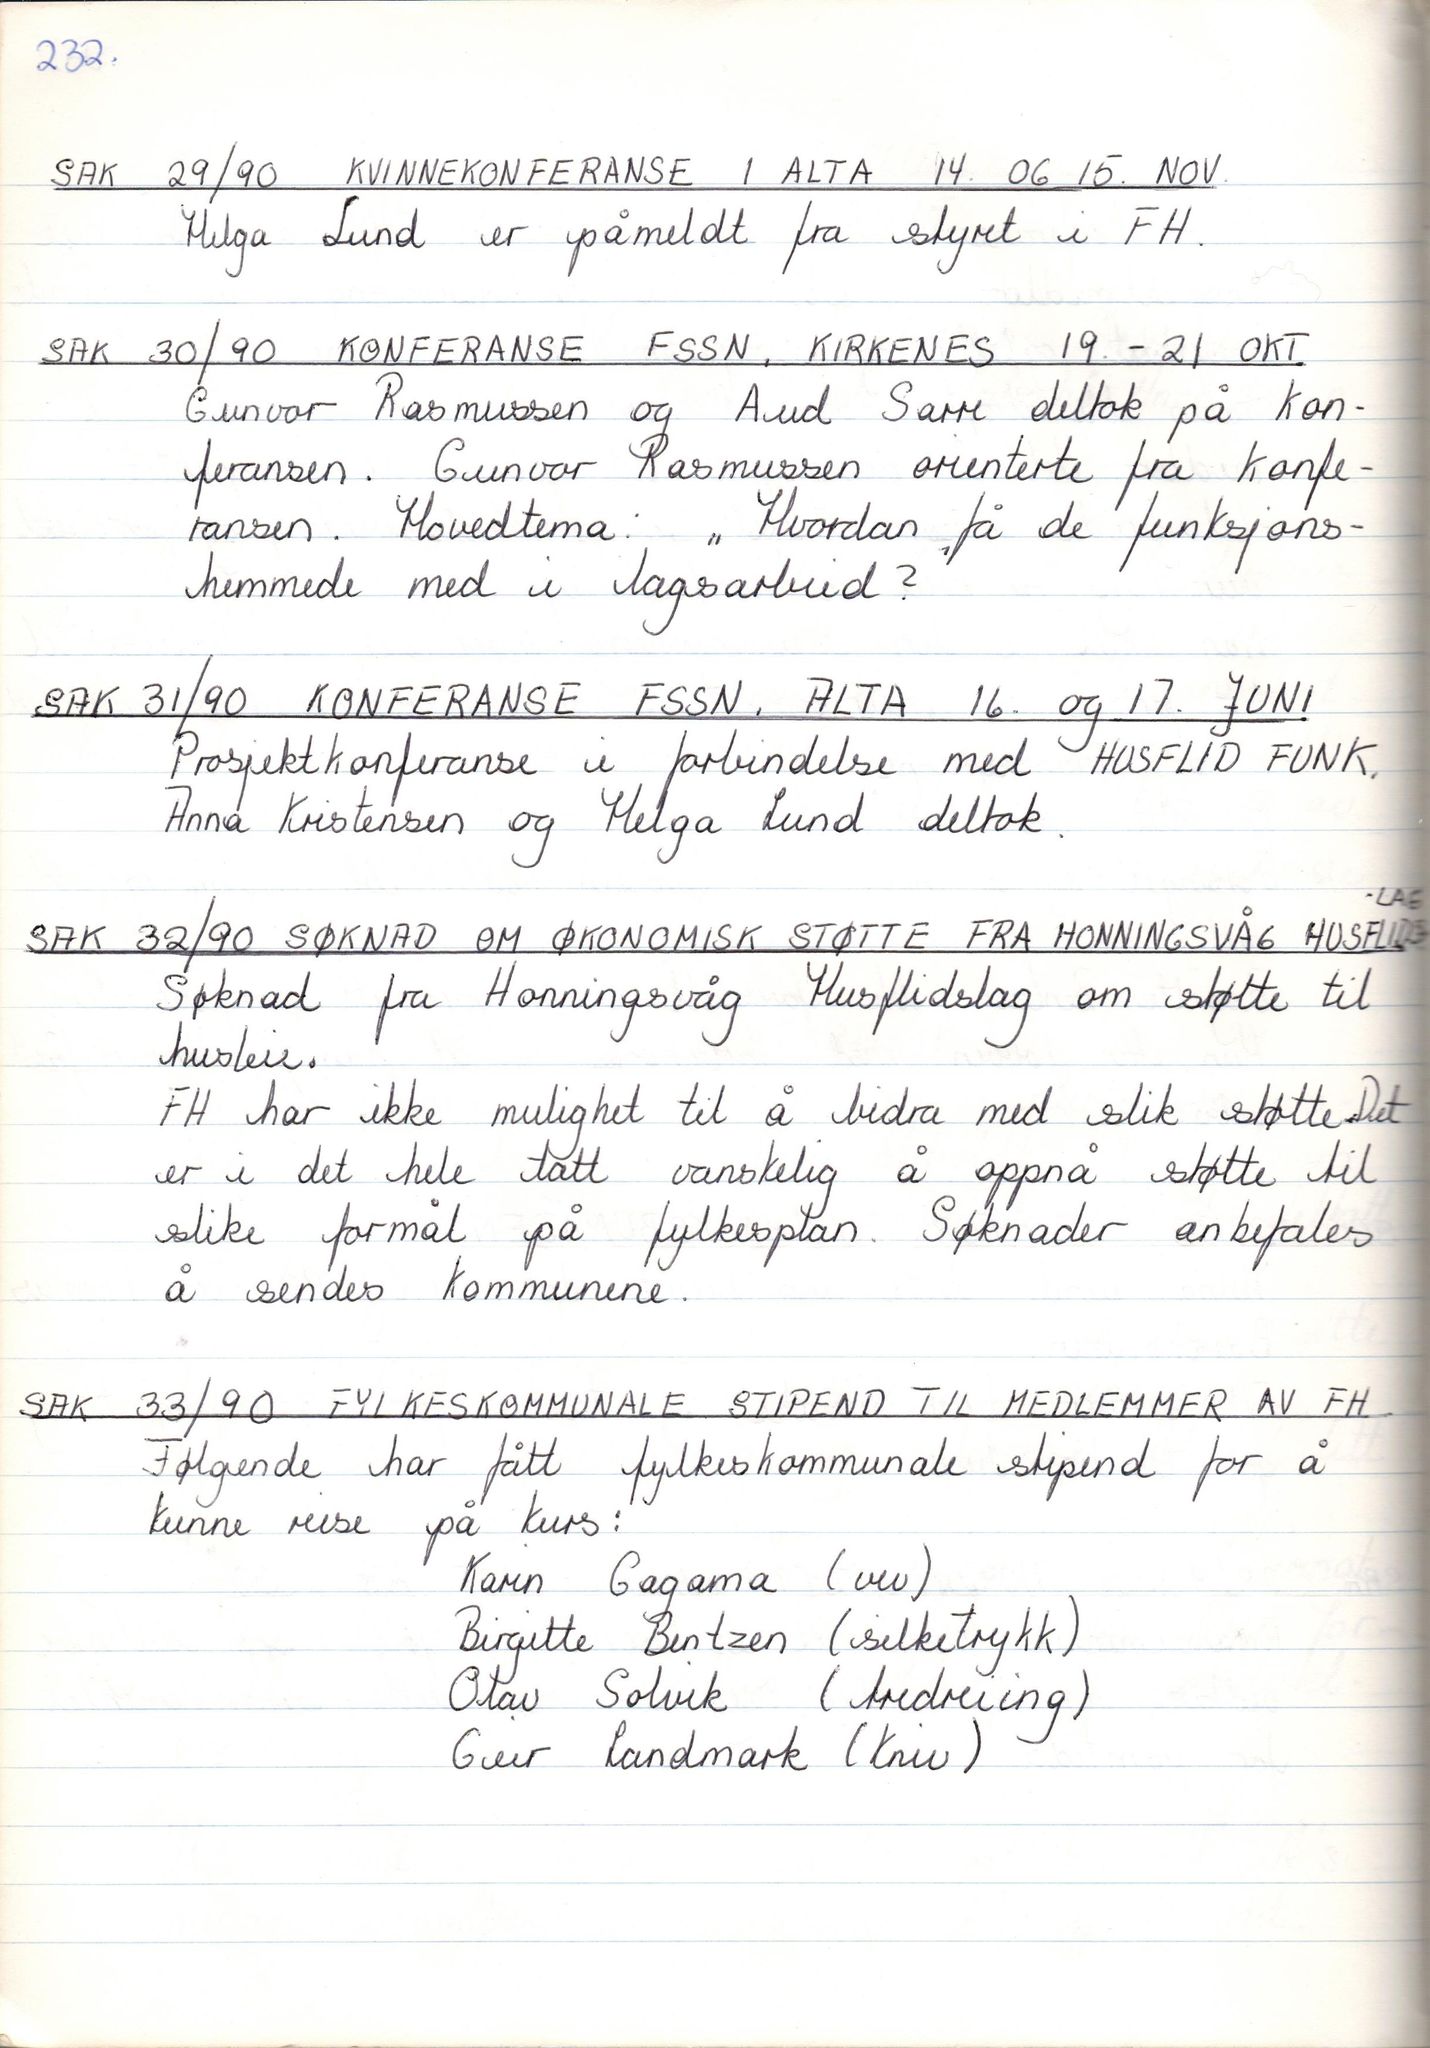 232.
SAK 29/90 KVINNEKONFERANSE I ALTA 14. OG 15. NOV.
Helga Lund er påmeldt fra styret i FH.
SAK 30/90 KONFERANSE FSSN, KIRKENES 19. - 21 OKT.
Gunvor Rasmussen og Aud Sarre deltok på kon-
feransen. Gunvor Rasmussen orienterte fra konfe-
ransen. Hovedtema: „Hvordan „få de funksjons-
hemmede med i lagsarbeid?
SAK 31/90 KONFERANSE FSSN, ALTA 16. og 17. JUNI
Prosjektkonferanse i forbindelse med HUSFLID FUNK.
Anna Kristensen og Helga Lund deltok.
SAK 32/90 SØKNAD OM ØKONOMISK STØTTE FRA HONNINGSVÅG HUSFLIDS-
-LAG
Søknad fra Honningsvåg Husflidslag om støtte til
husleie.
FH har ikke mulighet til å bidra med slik støtte. Det
er i det hele tatt vanskelig å oppnå støtte til
slike formål på fylkesplan. Søknader anbefales
å sendes kommunene.
SAK 33/90 FYLKESKOMMUNALE STIPEND TIL MEDLEMMER AV FH.
Følgende har fått fylkeskommunale stipend for å
kunne reise på kurs:
Karin Gagama (vev)
Birgitte Bentzen (silketrykk)
Olav Solvik (tredreiing)
Geir Landmark (kniv)